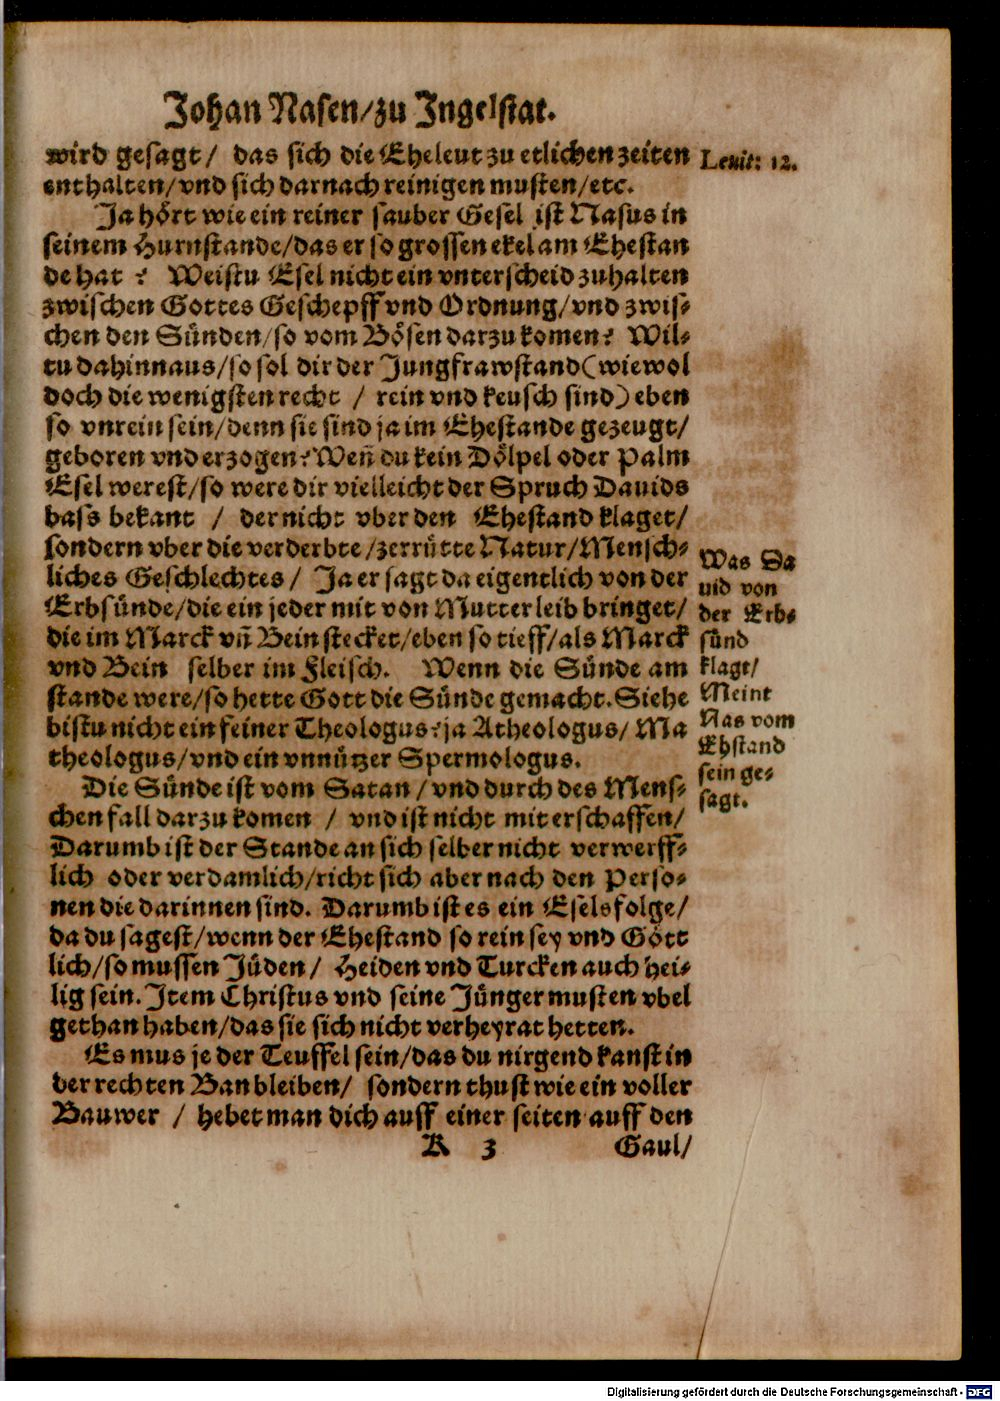 Johan Nasen/zu Jngelstat.
wird gesagt/ das sich die Eheleut zu etlichen zeiten
Leuit: 12.
enthalten/vnd sich darnach reinigen musten/etc.
Ja hört wie ein reiner sauber Gesel ist Nasus in
seinem Hurnstande/das er so grossen ekel am Ehestan
de hat ? Weistu Esel nicht ein vnterscheid zuhalten
zwischen Gottes Geschepff vnd Ordnung/vnd zwis-
chen den Sünden/so vom Bösen darzu komen? Wil-
tu dahinnaus/so sol dir der Jungfrawstand(wiewol
doch die wenigsten recht / rein vnd keusch sind) eben
so vnrein sein/denn sie sind ja im Ehestande gezeugt/
geboren vnd erzogen? Weñ du kein Dölpel oder Palm
Esel werest/so were dir vielleicht der Spruch Dauids
bass bekant / der nicht vber den Ehestand klaget/
sondern vber die verderbte/zerrütte Natur/Mensch-
liches Geschlechtes/ Ja er sagt da eigentlich von der
Erbsünde/die ein jeder mit von Mutterleib bringet/
die im Marck vñ Bein stecket/eben so tieff/als Marck
vnd Bein selber im Fleisch. Wenn die Sünde am
stande were/so hette Gott die Sünde gemacht. Siehe
bistu nicht ein feiner Theologus? ja Atheologus/ Ma
theologus/vnd ein vnnützer Spermologus.
Was Da
uid von
der Erb-
sünd
klagt/
Meint
Nas vom
Ehstand
sein ge-
sagt.
Die Sünde ist vom Satan/vnd durch des Mens-
chen fall darzu komen / vnd ist nicht mit erschaffen/
Darumb ist der Stande an sich selber nicht verwerff-
lich oder verdamlich/richt sich aber nach den Perso-
nen die darinnen sind. Darumb ist es ein Eselsfolge/
da du sagest/wenn der Ehestand so rein sey vnd Gött
lich/so mussen Jüden/ Heiden vnd Turcken auch hei-
lig sein. Jtem Christus vnd seine Jünger musten vbel
gethan haben/das sie sich nicht verheyrat hetten.
Es mus je der Teuffel sein/das du nirgend kanst in
der rechten Ban bleiben/ sondern thust wie ein voller
Bauwer / hebet man dich auff einer seiten auff den
K 3 Gaul/
Digitalisierung gefördert durch die Deutsche Forschungsgemeinschaft - DFG